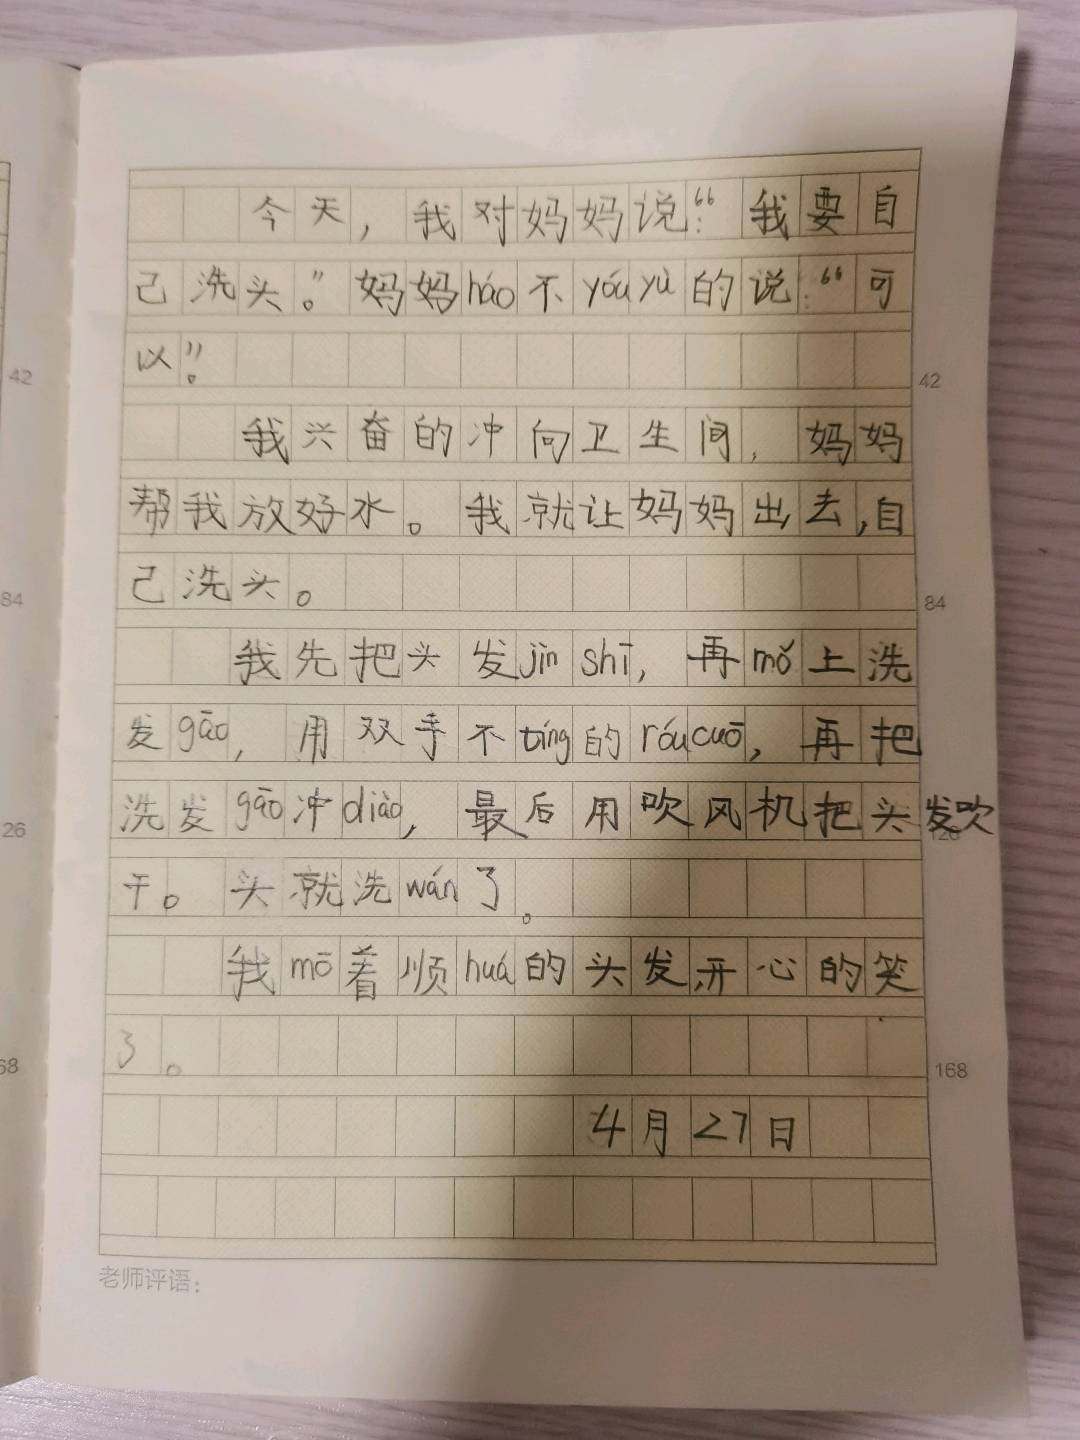 今天，我对妈妈说：“我要自
己洗头。”妈妈háo不yóuyù的说：“可
以”。
42
42
我兴奋的冲向卫生间，妈妈
帮我放好水。我就让妈妈出去，自
己洗头。
84
84
我先把头发jìnshī，再mǒ上洗
发gāo，用双手不tíng的róucuō，再把
洗发gāo冲diào，最后用吹风机把头发吹
26
126
干。头就洗wán了。
我mō着顺huá的头发开心的笑
了。
68
168
4月27日
老师评语：